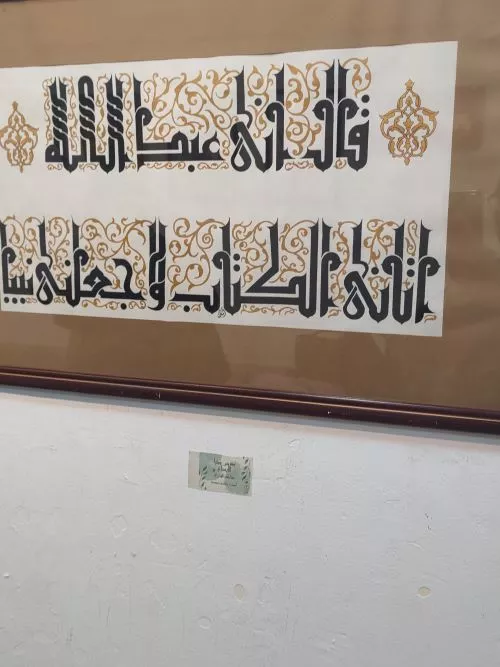 قال انى عبد الله
اتانى الكتاب وجعلنى نبيا